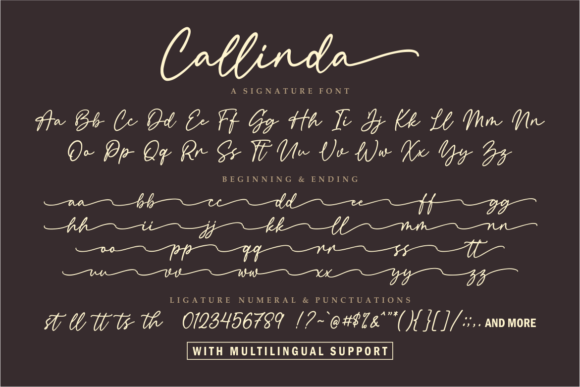 Callinda
A SIGNATURE FONT
Aa Bb Cc Dd Ee Ff Gg Hh Ii Jj Kk Ll Mm Nn
Oo Pp Qq Rr Ss Tt Uu Vv Ww Xx Yy Zz
BEGINNING & ENDING
aa bb cc dd ee ff gg
hh ii jj kk ll mm nn
oo pp qq rr ss tt
uu vv ww xx yy zz
LIGATURE NUMERAL & PUNCTUATIONS
st ll tt ts th 0123456789 !?~`@#$%&^"*(){}[]/:;,. AND MORE
WITH MULTILINGUAL SUPPORT